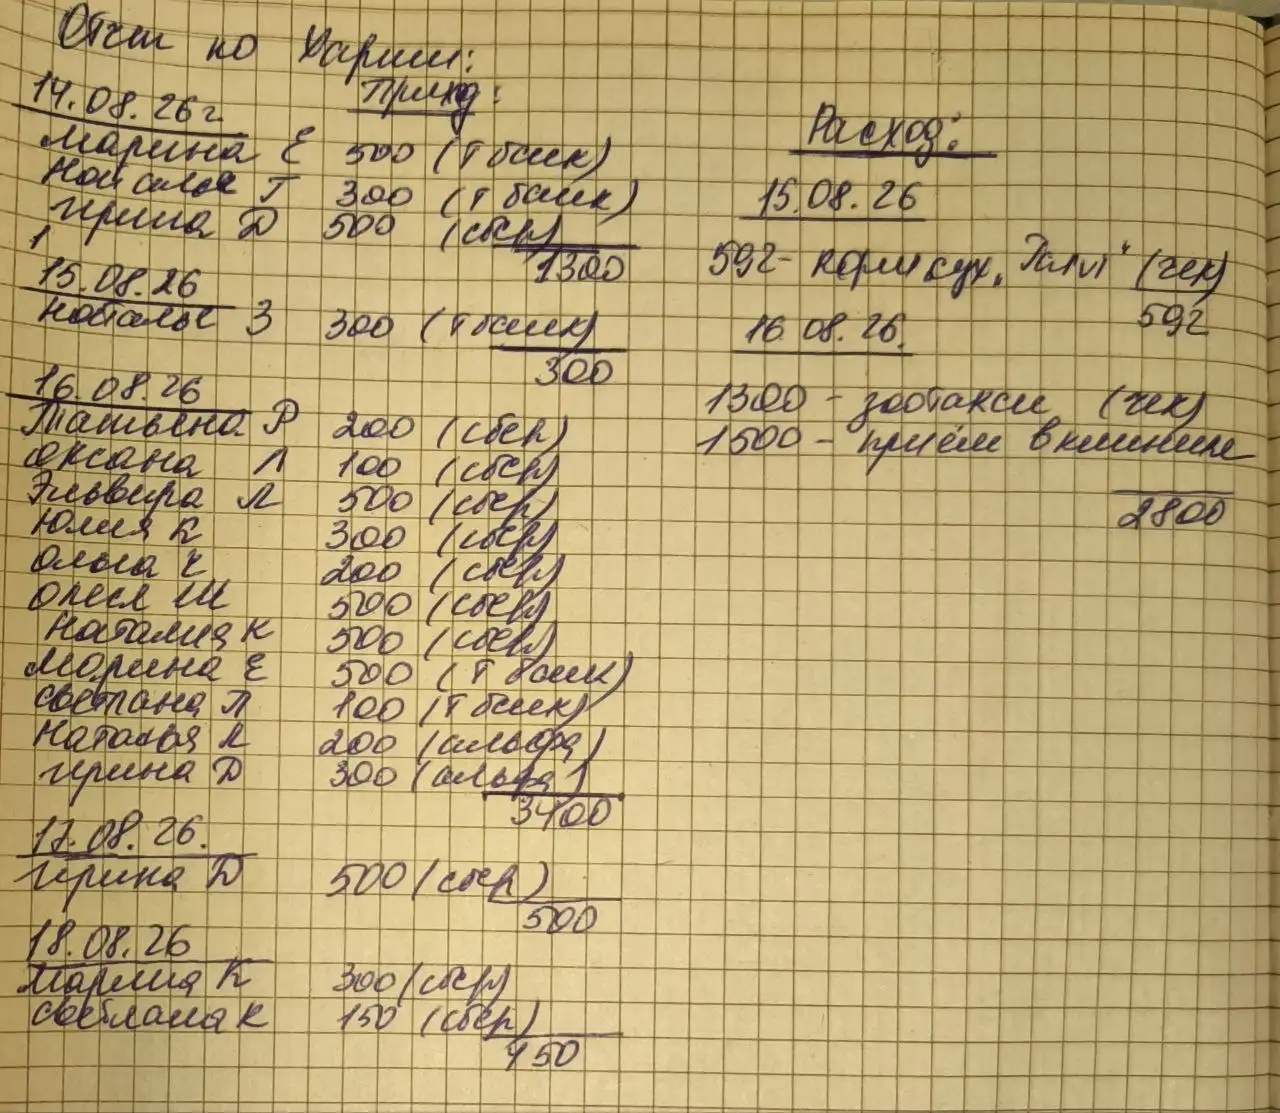 Отчет по Харши:
Приход:
14.08.26г
Марина Е 500 (Т банк)
Наталья Г 300 (Т банк)
Ирина Д 500 (сбер)
1300
15.08.26
Наталья З 300 (Т банк)
300
16.08.26
Татьяна Р 200 (сбер)
Оксана Л 100 (сбер)
Эльвира Л 500 (сбер)
Юлия К 300 (сбер)
Ольга Ч 200 (сбер)
Олеся Ш 500 (сбер)
Наталия К 500 (сбер)
Марина Е 500 (Т банк)
Светлана П 100 (Т банк)
Наталья Л 200 (альфа)
Ирина Д 300 (альфа)
3400
17.08.26.
Ирина Д 500 (сбер)
500
18.08.26
Мария К 300 (сбер)
Светлана К 150 (сбер)
450
Расход:
15.08.26
592 - корм сух. (чек)
592
16.08.26.
1300 - зоотакси (чек)
1500 - приём в клинике
2800